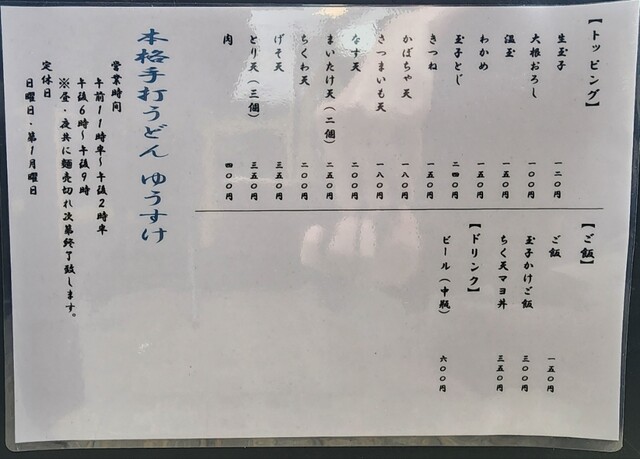 【トッピング】
生玉子 一二〇円
大根おろし 一〇〇円
温玉 一五〇円
わかめ 一五〇円
玉子とじ 二四〇円
きつね 一五〇円
かぼちゃ天 一八〇円
さつまいも天 一八〇円
なす天 二〇〇円
まいたけ天（二個） 二五〇円
ちくわ天 二〇〇円
げそ天 三五〇円
とり天（三個） 三五〇円
肉 四〇〇円
【ご飯】
ご飯 一五〇円
玉子かけご飯 三〇〇円
ちく天マヨ丼 三五〇円
【ドリンク】
ビール（中瓶） 六〇〇円
本格手打うどん ゆうすけ
営業時間
午前11時半～午後2時半
午後6時～午後9時
※昼・夜共に麺売切れ次第終了致します。
定休日
日曜日・第1月曜日